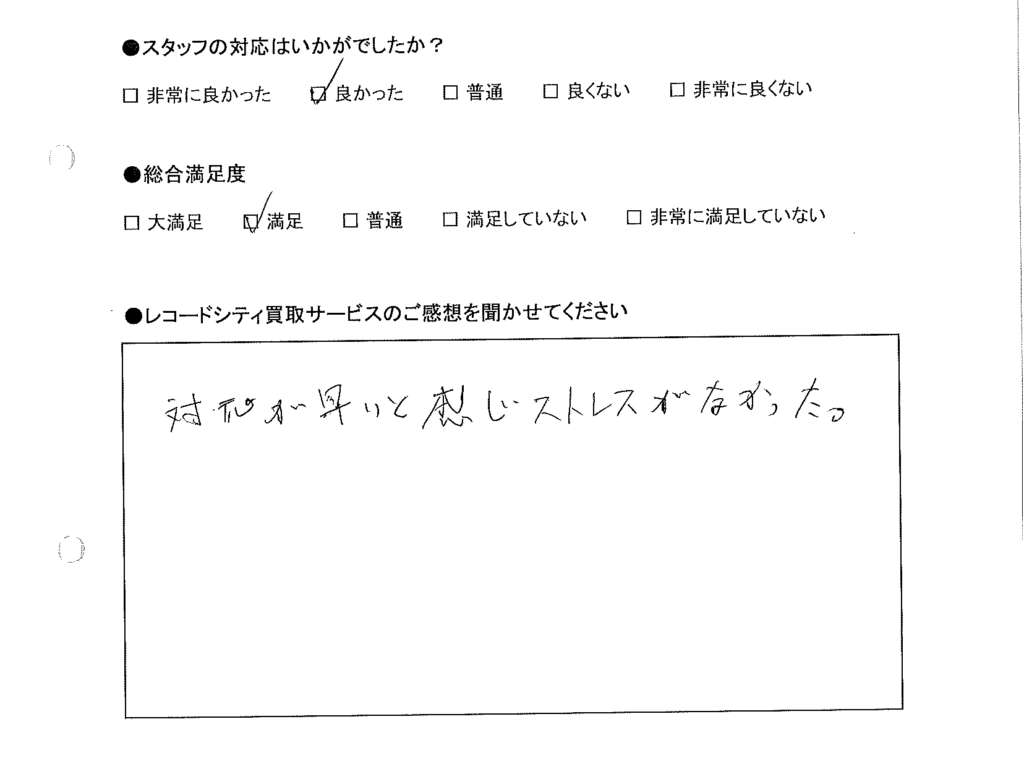 ●スタッフの対応はいかがでしたか？
□ 非常に良かった ☑ 良かった □ 普通 □ 良くない □ 非常に良くない
●総合満足度
□ 大満足 ☑ 満足 □ 普通 □ 満足していない □ 非常に満足していない
●レコードシティ買取サービスのご感想を聞かせてください
対応が早いと感じストレスがなかった。